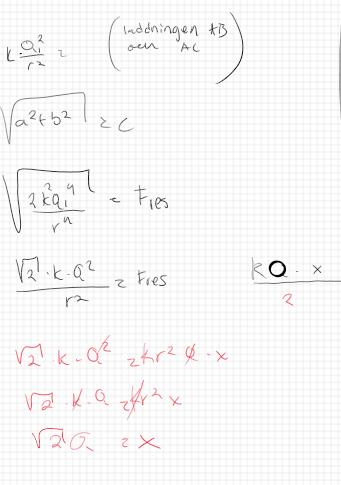 k · Q₁² / r² = (laddningen AB och AC)
√(a²+b²) = C
√(2k²Q₁⁴ / r⁴) = Fres
√2 · k · Q² / r² = Fres
kQ · x / 2
√2 · k · Q² = kr² Q · x
√2 · k · Q = kr² x
√2 Q = x